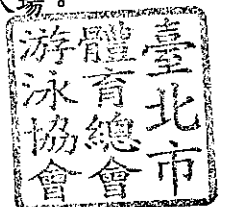 場。
臺北市
體育總會
游泳協會